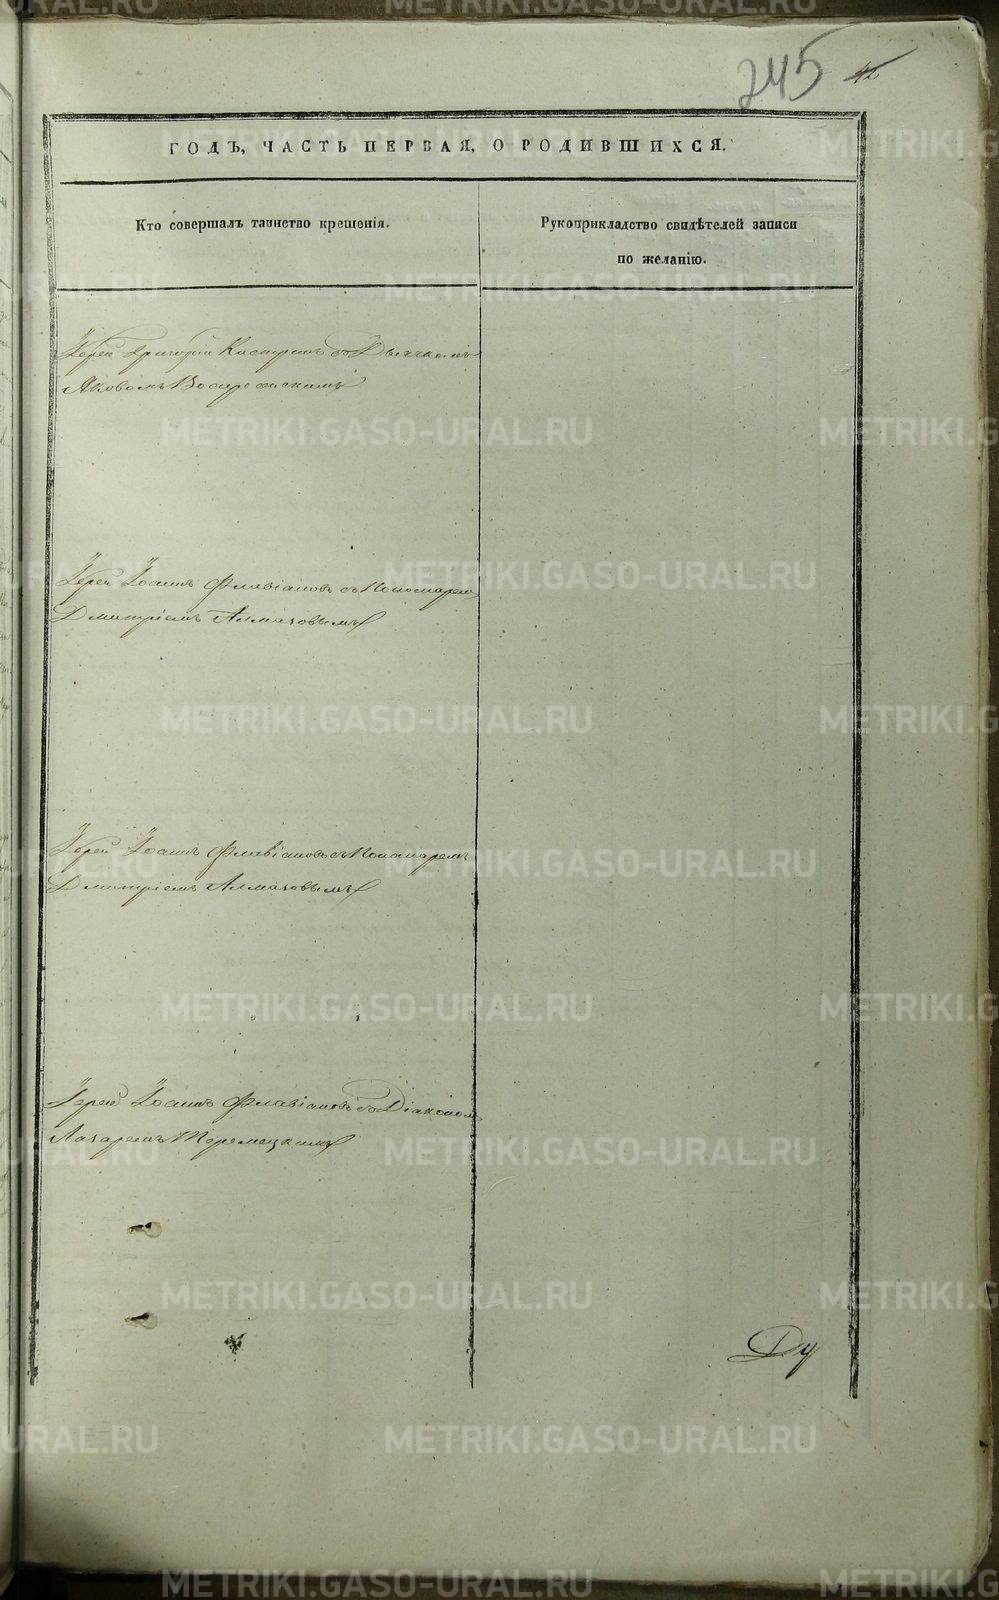 245 42
ГОДЪ, ЧАСТЬ ПЕРВАЯ, О РОДИВШИХСЯ.
Кто совершалъ таинство крещенія.
Рукоприкладство свидѣтелей записи
по желанію.
Іерей Григорій со Дьячкомъ
Яковомъ
Іерей Іоаннъ Флавіановъ съ Пономарем
Дмитріемъ Алмазовымъ
Іерей Іоаннъ Флавіановъ съ Пономаремъ
Дмитріемъ Алмазовымъ
Іерей Іоаннъ Флавіановъ со Діакономъ
Лазаремъ
Ду
METRIKI.GASO-URAL.RU